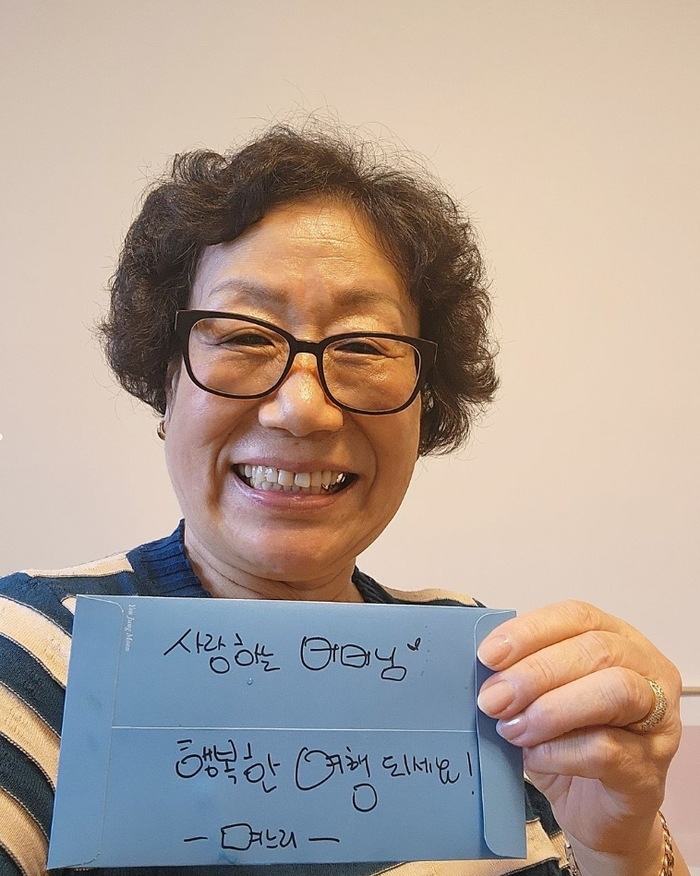 You Jung Moon
사랑하는 어머님
행복한 여행 되세요!
- 며느리 -